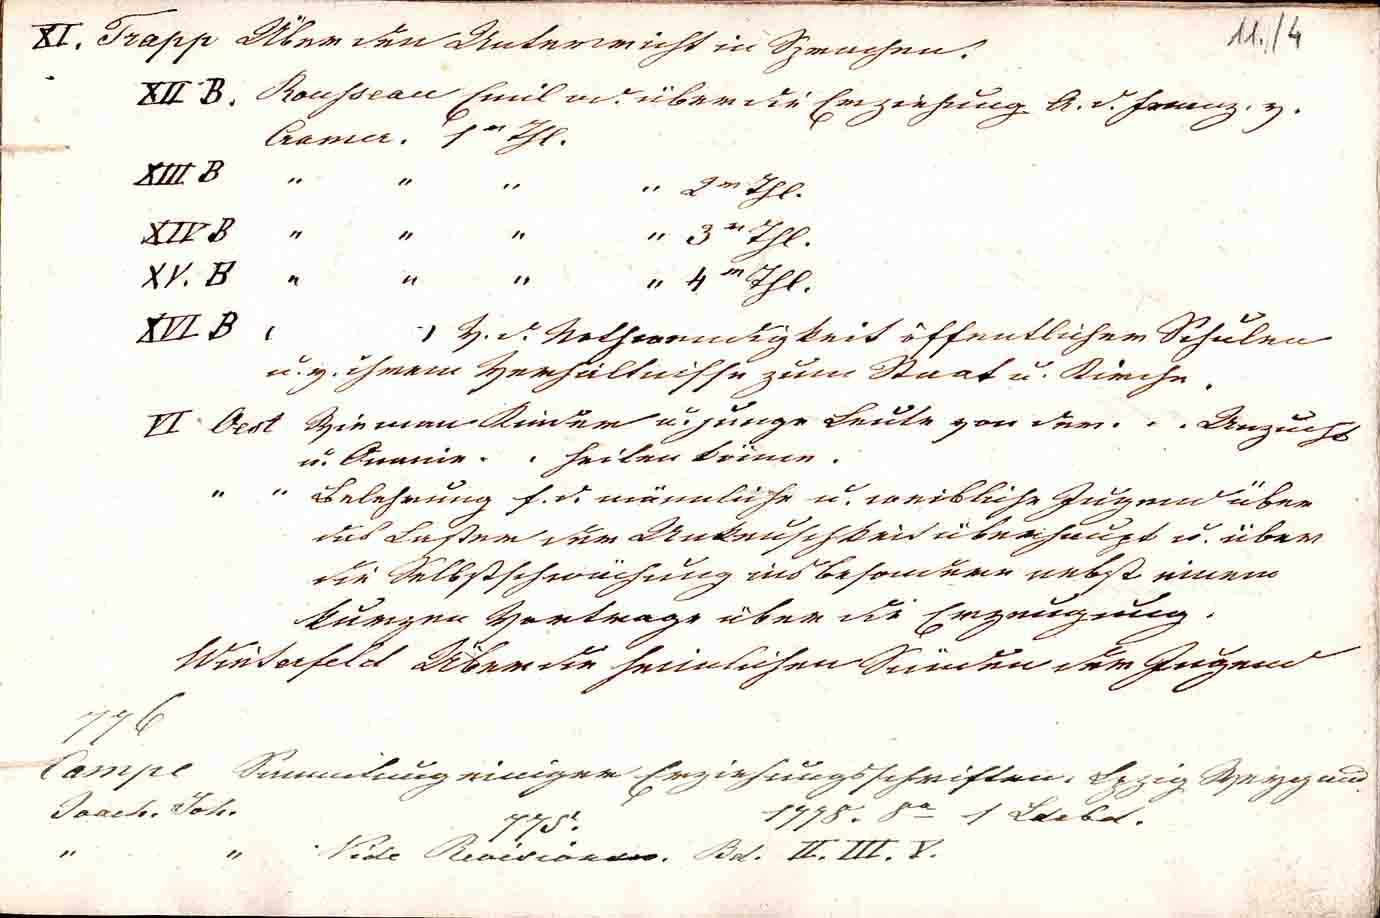 11./4
XI. Trapp Über den Unterricht in Sprachen.
XII B. Rousseau Emil od. über die Erziehung A. d. franz. v.
Cramer. 1r Thl.
XIII B " " " " 2r Thl.
XIV B " " " " 3r Thl.
XV. B " " " " 4r Thl.
XVI B ( ) V. d. Nothwendigkeit öffentlicher Schulen
u. v. ihrem Verhältnisse zum Staat u. Kirche.
VI Oest Wie man Kinder u. junge Leute von der . . . Unzucht
u. Onanie . . heilen könne.
" " Belehrung f. d. männliche u. weibliche Jugend über
das Laster der Unkeuschheit überhaupt u. über
die Selbstschwächung ins besondere nebst einem
kurzen Vortrage über die Erzeugung.
Winterfeld Über die heimlichen Sünden der Jugend
776
Campe Sammlung einiger Erziehungsschriften. Lpzig Weygand
Joach. Joh. 1778. 8o 1 Ldebd.
775.
" " Vide Revision. Bd. II. III. V.